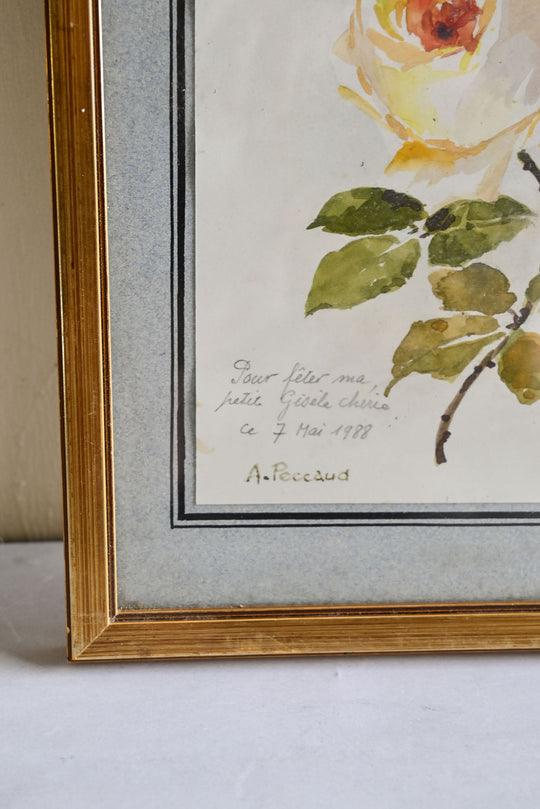 Pour fêter ma
petite Gisèle chérie
ce 7 Mai 1988
A. Peccaud